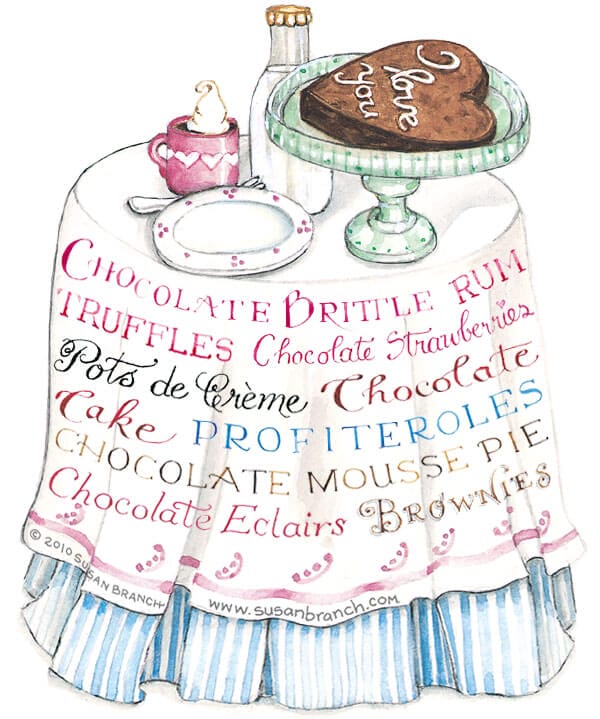 I
love
you
CHOCOLATE BRITTLE RUM
TRUFFLES Chocolate Strawberries
Pots de Crème Chocolate
Cake PROFITEROLES
CHOCOLATE MOUSSE PIE
Chocolate Eclairs BROWNIES
© 2010 SUSAN BRANCH
www.susanbranch.com